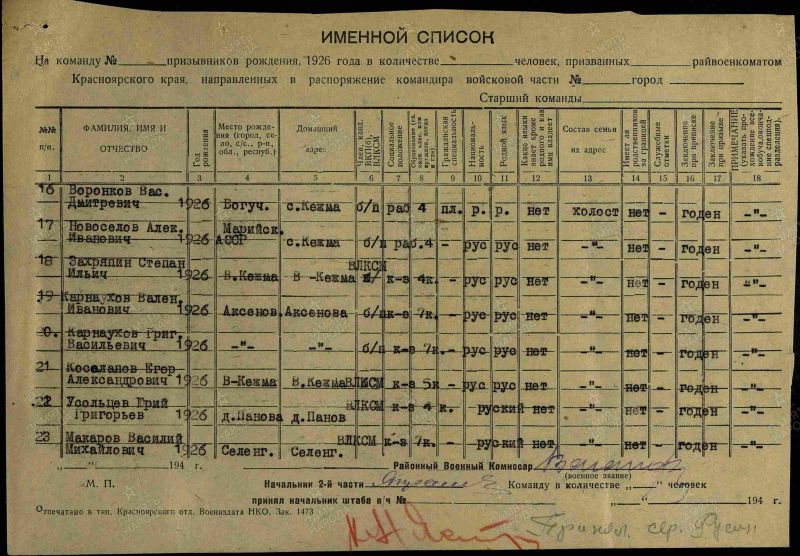 ИМЕННОЙ СПИСОК
На команду № призывников рождения, 1926 года в количестве человек, призванных райвоенкоматом
Красноярского края, направленных в распоряжение командира войсковой части № город
Старший команды
№№ п/п. ФАМИЛИЯ, ИМЯ И ОТЧЕСТВО Год рождения Место рождения (город, село, с/с., р-н, обл., республ.) Домашний адрес Член, канд. ВКП(б) ВЛКСМ Социальное положение Образование Гражданская специальность Националь-ность Родной язык Какие языки знает кроме родного и как ими владеет Состав семьи их адрес Имеет ли родственников за границей Служебные отметки Заключение при приписке Заключение при призыве ПРИМЕЧАНИЕ
1 2 3 4 5 6 7 8 9 10 11 12 13 14 15 16 17 18
16 Воронков Вас.
Дмитревич 1926 Богуч. с.Кежма б/п раб 4 пл. р. р. нет холост нет - годен -"-
17 Новоселов Алек. Марийск.
Иванович 1926 АССР с.Кежма б/п раб.4 - рус рус нет -"- нет - годен -"-
18 Захряпин Степан ВЛКСМ
Ильич 1926 В.Кежма В -Кежма к-з 4к. - рус рус нет -"- нет - годен -"-
19 Карнаухов Вален.
Иванович 1926 Аксенов. Аксенова б/п к-з 7к. - рус рус нет -"- нет - годен -"-
0. Карнаухов Григ.
Васильевич 1926 -"- -"- б/п к-з 7к. - рус рус нет -"- нет - годен -"-
21 Косаланов Егор
Александрович 1926 В-Кежма В.Кежма ВЛКСМ к-з 5к - рус рус нет -"- нет - годен -"-
22 Усольцев Юрий
Григорьев 1926 д.Панова д.Панов ВЛКСМ к-з 4 к. - руский нет -"- нет - годен -"-
23 Макаров Василий
Михайлович 1926 Селенг. Селенг. ВЛКСМ к-з 7к. - руский нет -"- нет - годен -"-
„ “ 194 г. Районный Военный Комиссар
(военное звание)
М. П. Начальник 2-й части Команду в количестве „ “ человек
принял начальник штаба в/ч № „ “ 194 г.
Отпечатано в тип. Красноярского отд. Воениздата НКО. Зак. 1473
Принял. сер. Русин